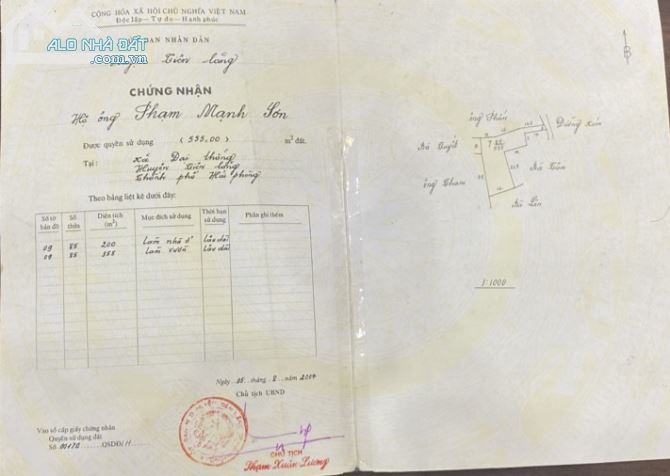 CỘNG HÒA XÃ HỘI CHỦ NGHĨA VIỆT NAM
Độc lập - Tự do - Hạnh phúc
ALO NHÀ ĐẤT
.com.vn
BAN NHÂN DÂN
Tiên Lãng
CHỨNG NHẬN
Hộ ông Phạm Mạnh Sơn
Được quyền sử dụng (555.00) m² đất.
Tại : Xã Đại Thắng
Huyện Tiên Lãng
Thành phố Hải Phòng
Theo bảng liệt kê dưới đây:
Số tờ bản đồ | Số thửa | Diện tích (m²) | Mục đích sử dụng | Thời hạn sử dụng | Phần ghi thêm
09 | 85 | 200 | Làm nhà ở | Lâu dài
09 | 85 | 355 | Làm vườn | Lâu dài
Ngày 05 tháng 8 năm 2004
Chủ tịch UBND
CHỦ TỊCH
Phạm Xuân Lương
Vào sổ cấp giấy chứng nhận
Quyền sử dụng đất
Số QSDĐ/H
B
ông Phấn
Đường xóm
Bà Quyết
T 85
555
Bà Vân
ông Tham
Bà Lên
1:1000